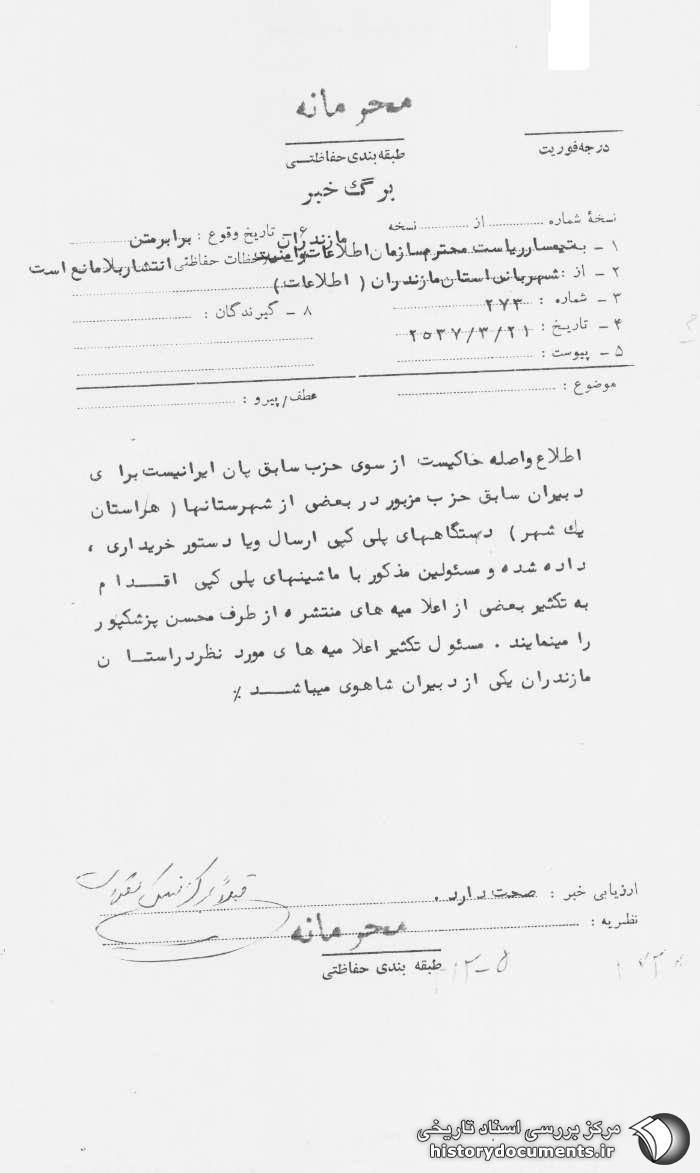 محرمانه
درجه فوریت
طبقه بندی حفاظتی
برگ خبر
نسخهٔ شماره .......... از .......... نسخه
۱ - به تیمسار ریاست محترم سازمان اطلاعات و امنیت مازندران
۲ - از : شهربانی استان مازندران ( اطلاعات )
۳ - شماره : ۲۷۳
۴ - تاریخ : ۲۵۳۷/۳/۲۱
۵ - پیوست :
۶ - تاریخ وقوع : برابر متن
ملاحظات حفاظتی انتشار بلامانع است
۸ - گیرندگان :
موضوع :
عطف/پیرو :
اطلاع واصله حاکیست از سوی حزب سابق پان ایرانیست برای
دبیران سابق حزب مزبور در بعضی از شهرستانها ( هر استان
یك شهر ) دستگاههای پلی کپی ارسال ویا دستور خریداری ،
داده شده و مسئولین مذکور با ماشینهای پلی کپی اقدام
به تکثیر بعضی از اعلامیه های منتشره از طرف محسن پزشکپور
را مینمایند . مسئول تکثیر اعلامیه های مورد نظر در استان
مازندران یکی از دبیران شاهوی میباشد ٪
ارزیابی خبر : صحت دارد .
نظریه :
محرمانه
طبقه بندی حفاظتی
مرکز بررسی اسناد تاریخی
historydocuments.ir